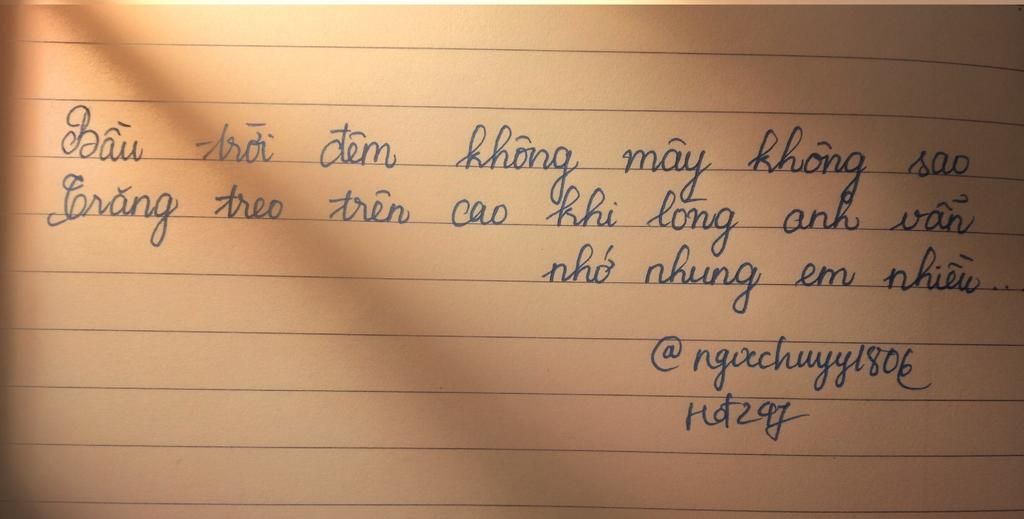 Bầu trời đêm không mây không sao
Trăng treo trên cao khi lòng anh vẫn
nhớ nhung em nhiều...
@ngocchuyy1806